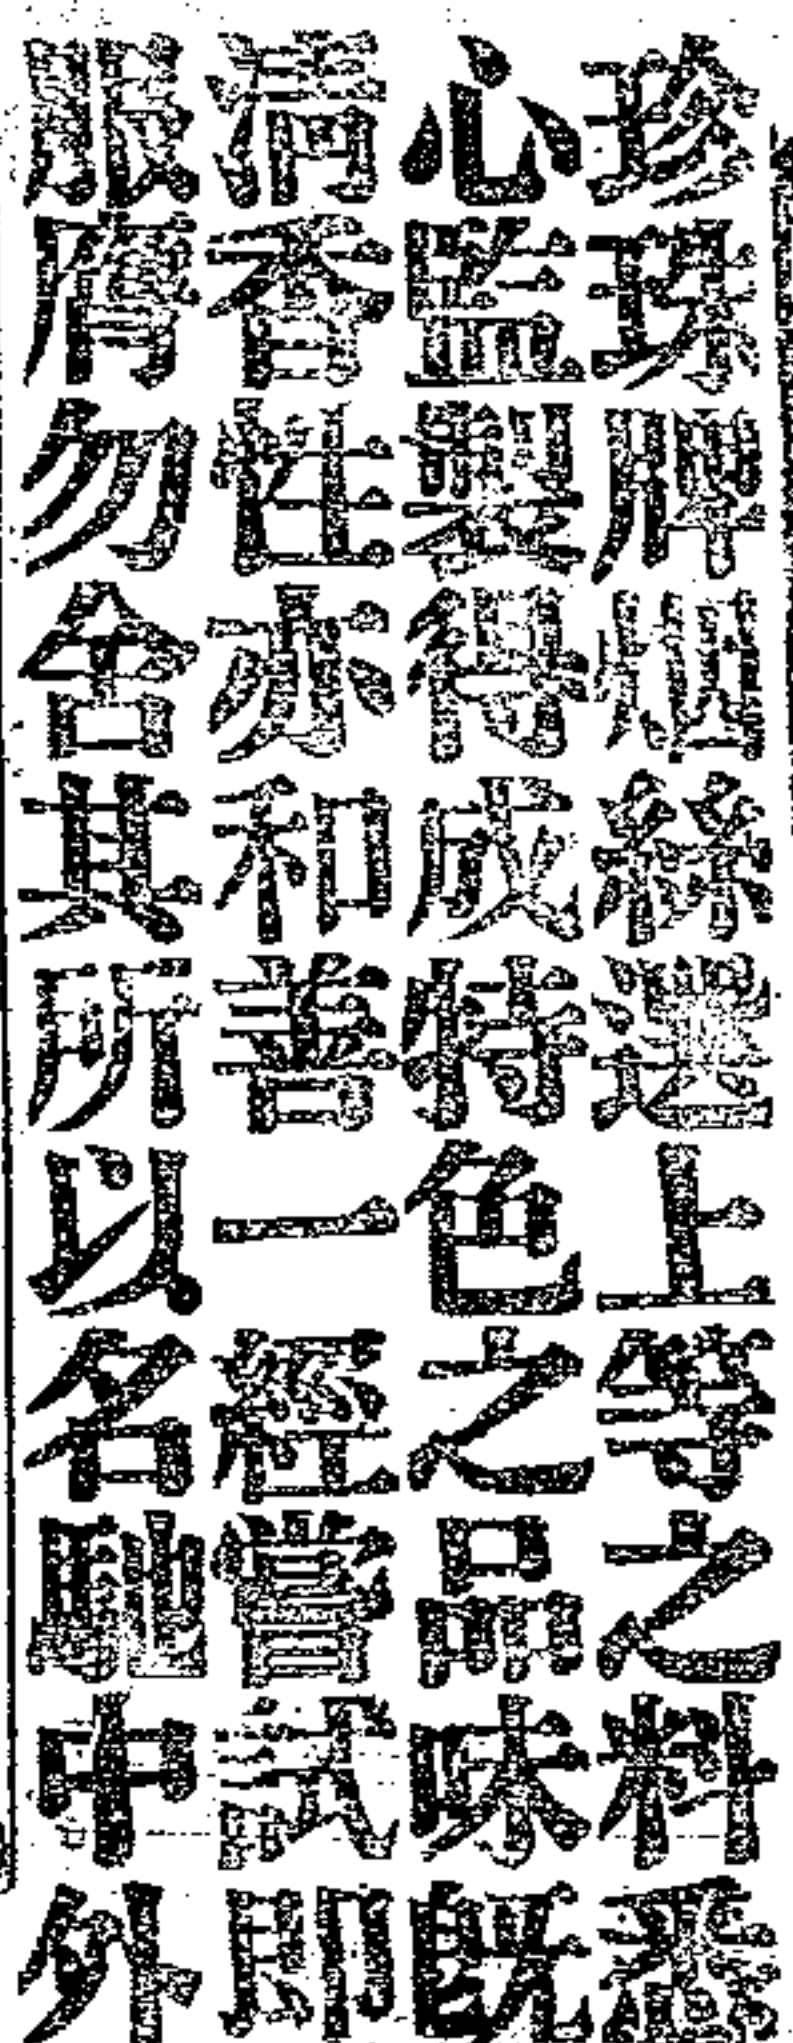 珍珠牌烟絲選上等之料悉
心監製得成特色之品味既
清香性亦和善一經嘗試即
服膺勿舍其所以名馳中外